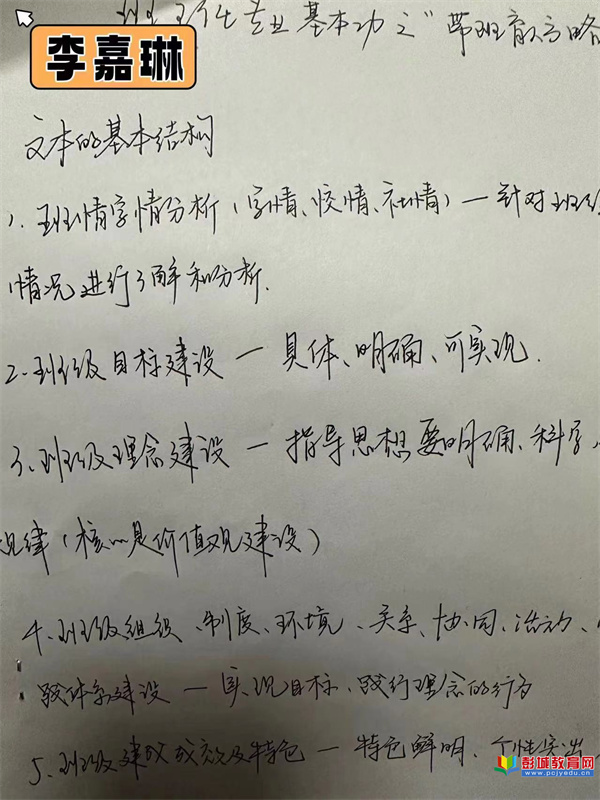 班主任专业基本功之"带班育人方略
李嘉琳
文本的基本结构
1. 班情学情分析(学情、校情、社情)—针对班级
情况进行了解和分析.
2. 班级目标建设 — 具体、明确、可实现.
3. 班级理念建设 — 指导思想要明确、科学、
规律(核心是价值观建设)
4. 班级组织、制度、环境、关系、协同、活动、
践体系建设 — 实现目标、践行理念的行为
5. 班级建设成效及特色 — 特色鲜明、个性突出
彭城教育网
www.pcjyedu.cn